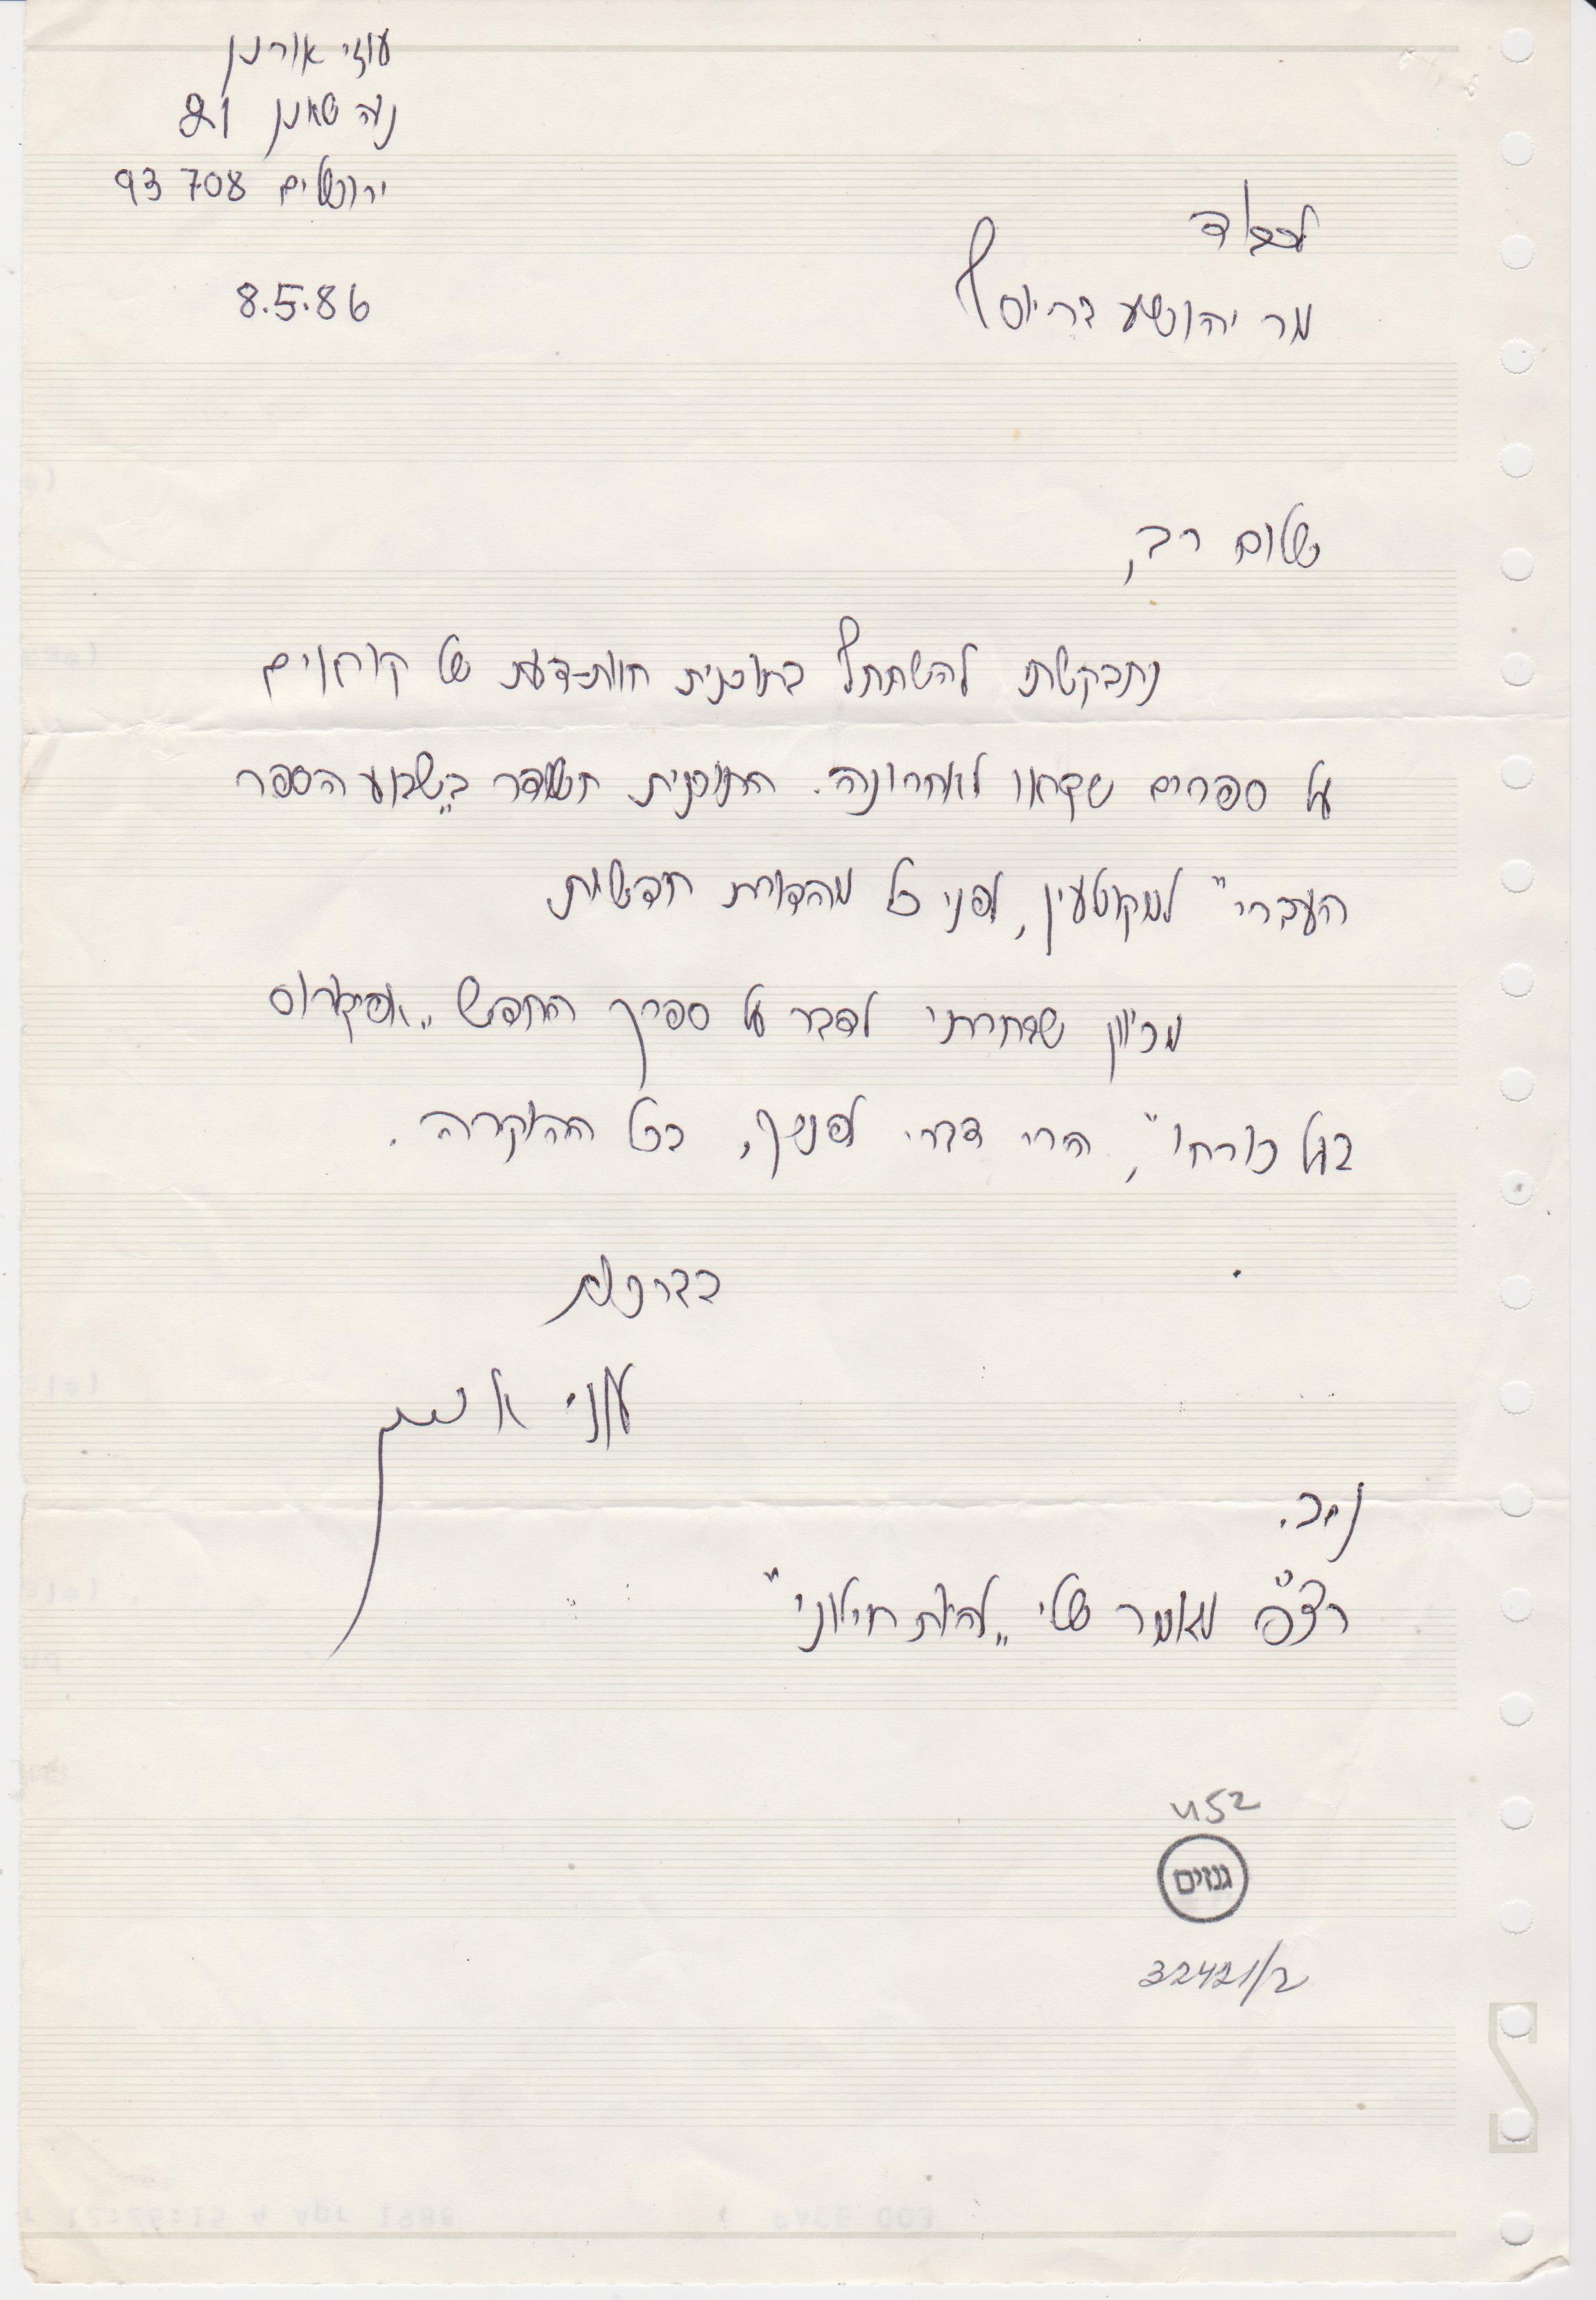 עוזי אורנן
נוה שאנן 21
ירושלים 93708
8.5.86
לכבוד
מר יהושע בר יוסף
שלום רב,
נתבקשתי להשתתף בתוכנית חוות-דעת של קוראים
על ספרים שקראו לאחרונה. התוכנית תשודר ב„שבוע הספר
העברי" למקוטעין, לפני כל מהדורת חדשות
מכיוון שבחרתי לדבר על ספרך החדש „אפיקורוס
בעל כורחו", הרי דברי לפניך, בכל ההוקרה.
בברכות
עוזי אורנן
נ.ב.
רצ"פ מאמר שלי „להיות חילוני"
452
גנזים
32421/2